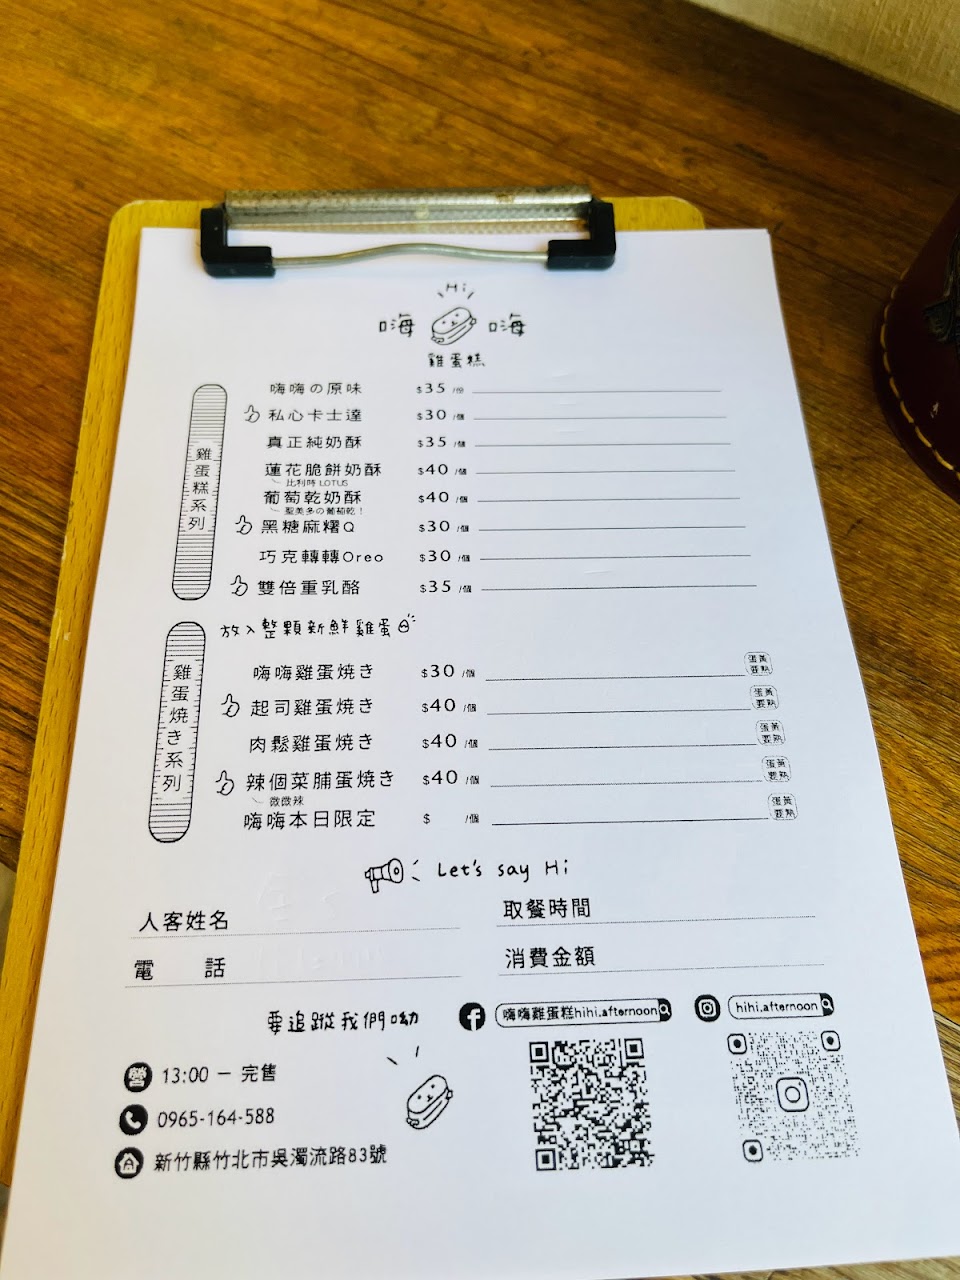 Hi
嗨 嗨
雞蛋糕
雞蛋糕系列
嗨嗨の原味 $35 /份
私心卡士達 $30 /個
真正純奶酥 $35 /個
蓮花脆餅奶酥 $40 /個
比利時 LOTUS
葡萄乾奶酥 $40 /個
聖美多の葡萄乾！
黑糖麻糬Q $30 /個
巧克轉轉Oreo $30 /個
雙倍重乳酪 $35 /個
放入整顆新鮮雞蛋
雞蛋燒き系列
嗨嗨雞蛋燒き $30 /個 蛋黃要熟
起司雞蛋燒き $40 /個 蛋黃要熟
肉鬆雞蛋燒き $40 /個 蛋黃要熟
辣個菜脯蛋燒き $40 /個 蛋黃要熟
微微辣
嗨嗨本日限定 $ /個 蛋黃要熟
Let's say Hi
人客姓名 取餐時間
電 話 消費金額
要追蹤我們呦 嗨嗨雞蛋糕hihi.afternoon hihi.afternoon
營 13:00 － 完售
0965-164-588
新竹縣竹北市吳濁流路83號